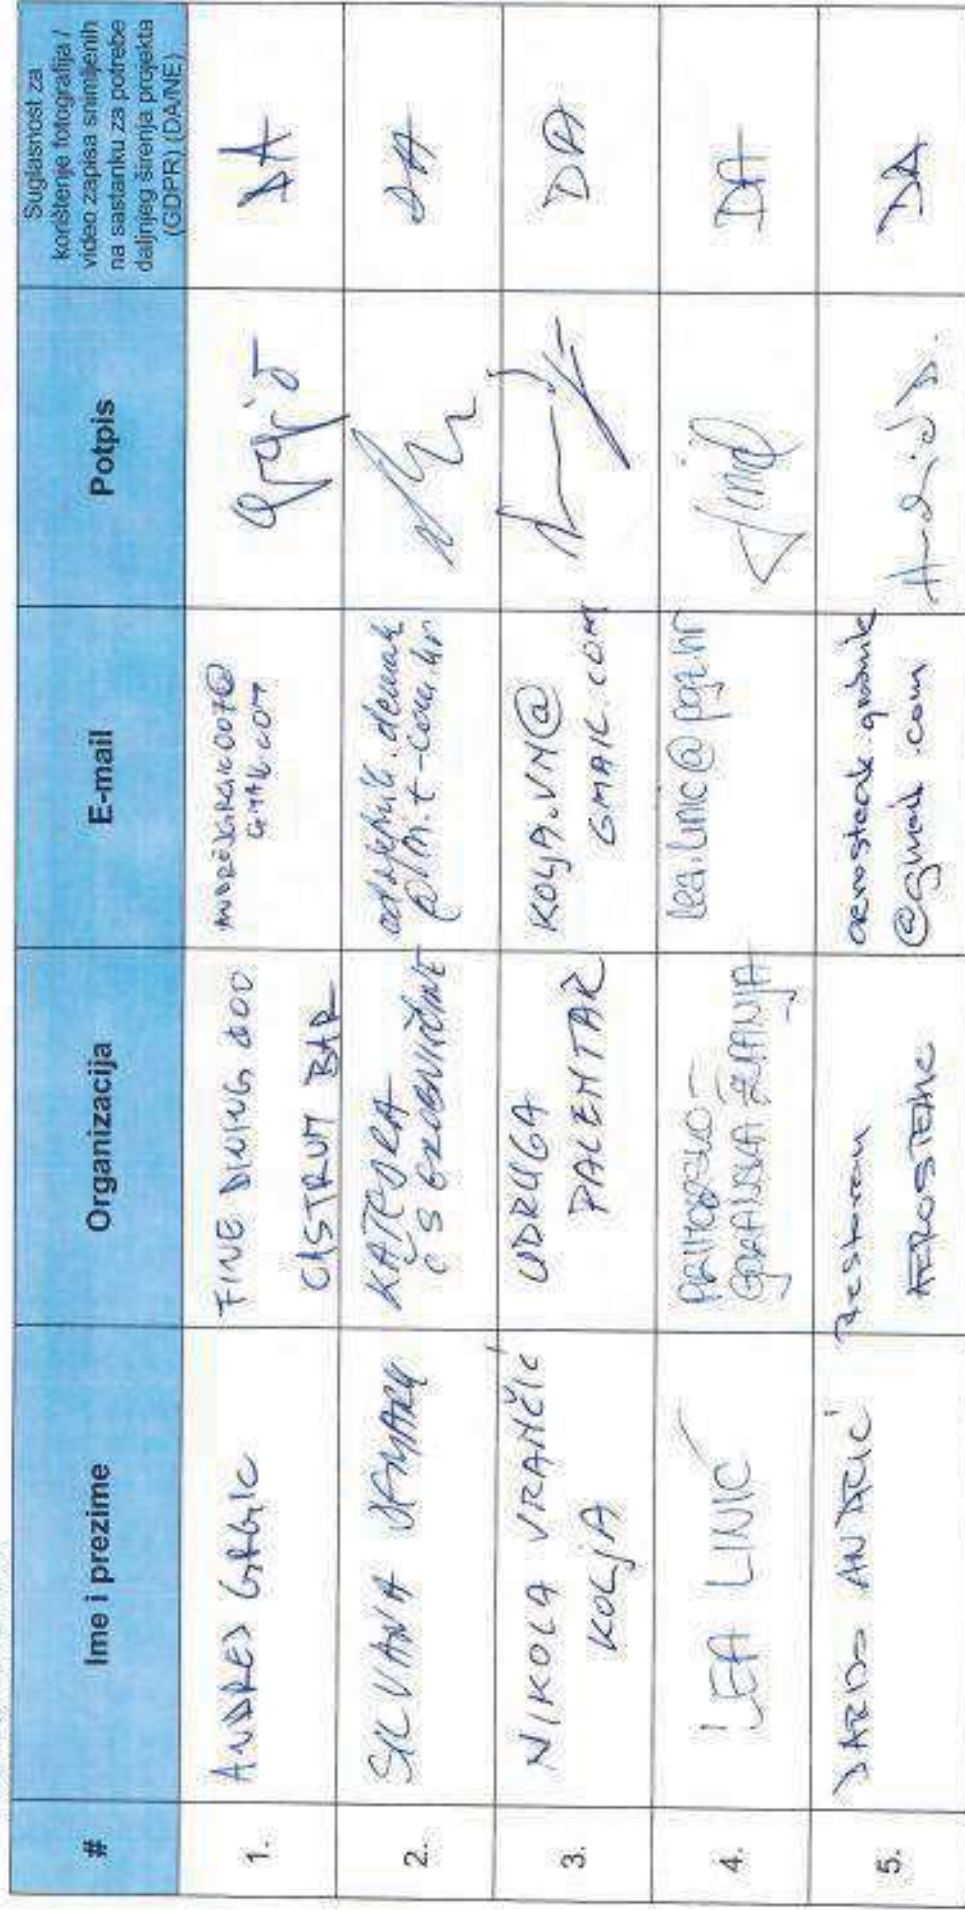 #
Ime i prezime
Organizacija
E-mail
Potpis
Suglasnost za
korištenje fotografija /
video zapisa snimljenih
na sastanku za potrebe
daljnjeg širenja projekta
(GDPR) (DA/NE)
1.
ANDREJ
FINE DINING, DOO
CASTRUM BAR
GMAIL.COM
DA
2.
SILVANA
KATEDRA
ČS GROBNIŠĆINE
DA
3.
NIKOLA VRANČIĆ
KOLJA
UDRUGA
PALENTAR
KOLJA.VN@
GMAIL.COM
DA
4.
LEA LINIĆ
PRIMORSKO-
GORANSKA ŽUPANIJA
lea.linic@pgz.hr
DA
5.
DARIO ANDRIĆ
Restoran
AEROSTEAK
aerosteak.grobnik
@gmail.com
DA